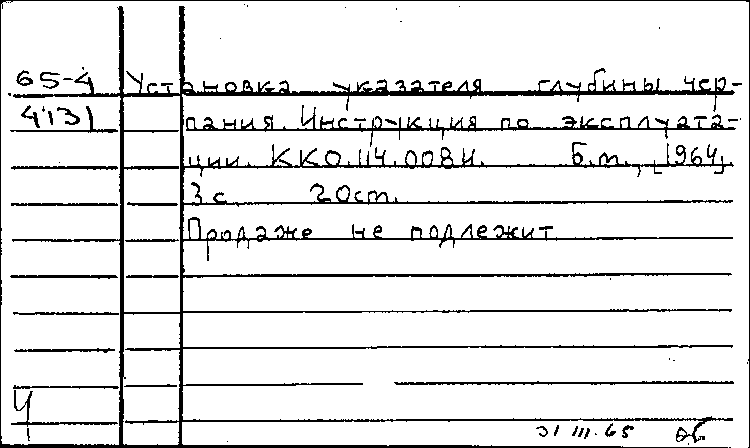 65-4 Установка указателя глубины чер-
4131 пания. Инструкция по эксплуата-
ции. ККО.114.008И. Б.м., [1964].
3 с. 20ст.
Продаже не подлежит
Ч
31 III.65